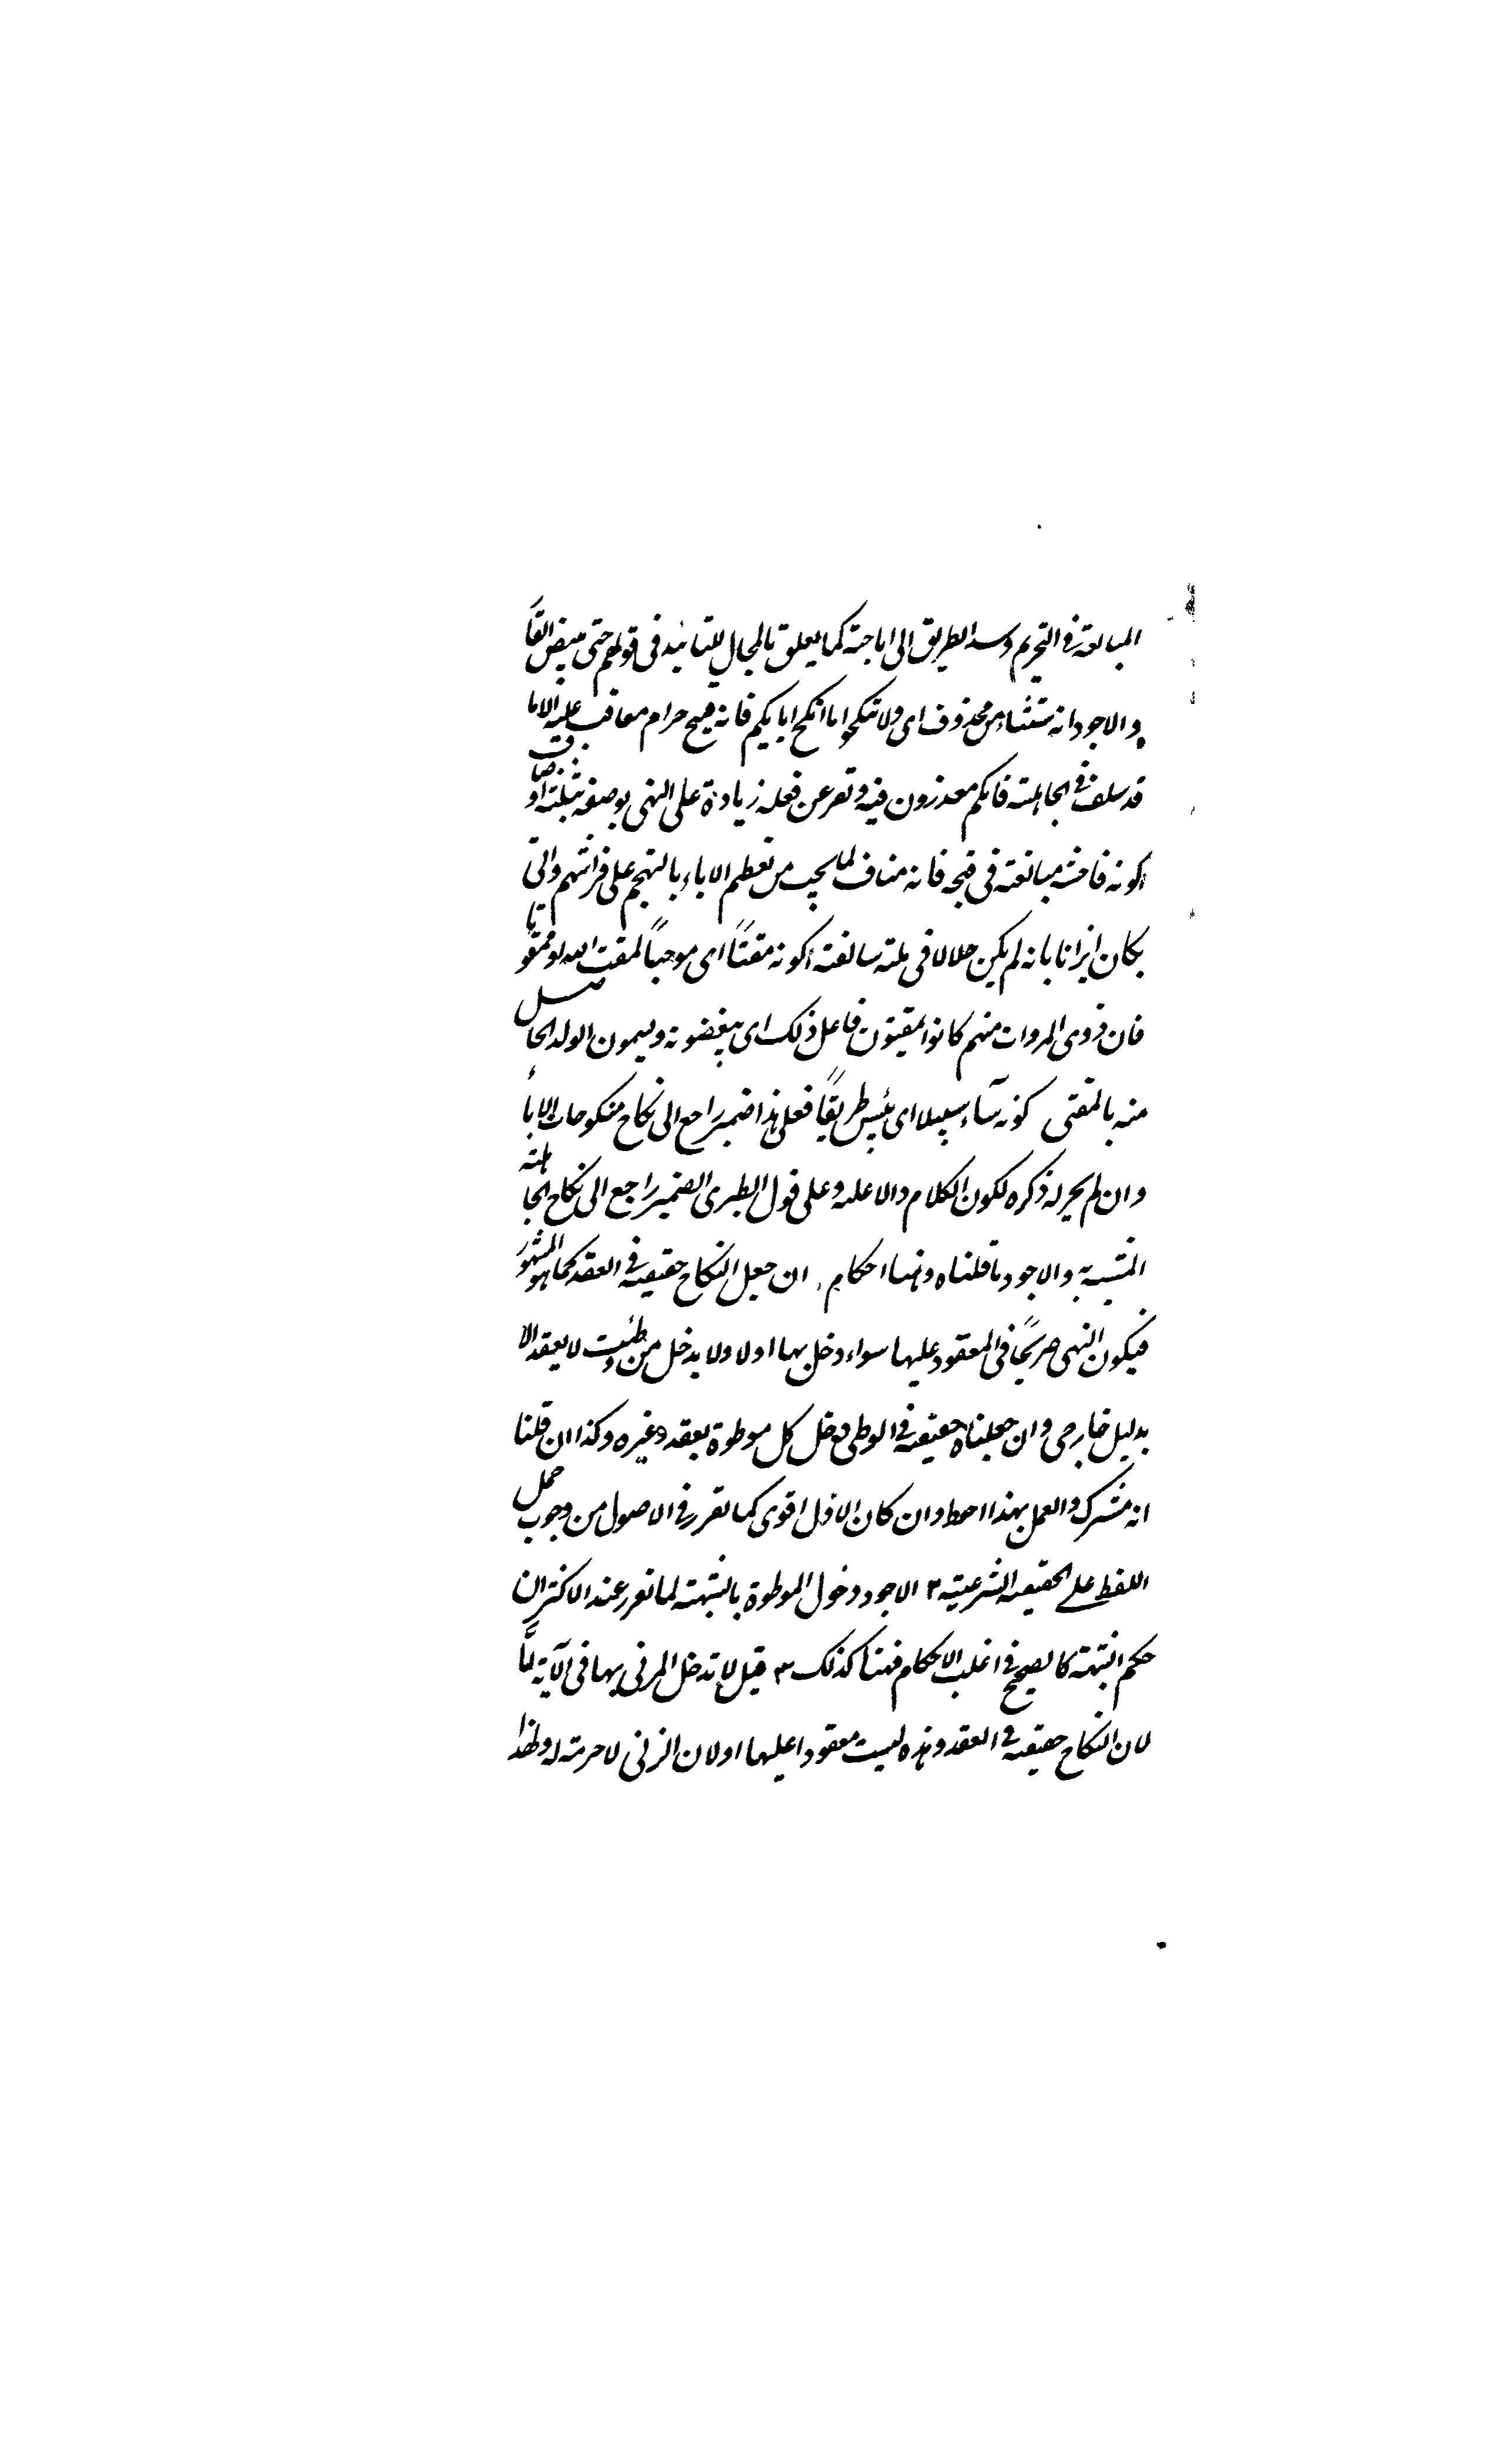 المبالغة في التحريم وسد الطريق الى اباحته كما يعلق بالمحال للتابيد في قولهم حتى يبيض القا
والاجود انه استثناء من محذوف اى ولا تنكحوا ما نكح اباؤكم فانه قبيح حرام معاقب عليه الا ما
قد سلف في الجاهلية فانكم معذرون فيه وتفرعن فعله زيادة على النهى بوصفه بثلثة اوصاف
ا كونه فاحشة مبالغة في قبحه فانه مناف لما يجب من تعظيم الاباء بالتهجم على فراشهم والتي
بكان ايذانا بانه لم يكن حلالا في ملة سالفة ب كونه مقتًا اى موجبًا لمقت الله او ممقوتا
فان ذوى المروات منهم كانوا يمقتون فاعل ذلك اى يبغضونه ويسمون الولد الحاصل
منه بالمقتى كونه سآء سبيلا اى بئس طريقًا فعلى هذا ضمير راجع الى نكاح منكوحات الابآء
وان لم يجر له ذكره لكون الكلام دالا عليه وعلى قول الطبرى الضمير راجع الى نكاح الجاهلية
والاجود ما قلناه وهنا احكام ا ان جعل النكاح حقيقة في العقد كما هو المشهور
فيكون النهى صريحًا في المعقود عليها سواء دخل بها اولا ولا يدخل من وطئت لا بعقد الا
بدليل خارجى وان جعلناه حقيقة في الوطى دخل كل موطوة بعقد وغيره وكذا ان قلنا
انه مشترك والعمل بهذا احوط وان كان الاول اقوى كما تقرر في الاصول من وجوب حمل
اللفظ على الحقيقة الشرعية ٢ الاجود دخول الموطوة بالشبهة لما تقرر عند الاكثر ان
حكم الشبهة كالصحيح في اغلب الاحكام فهنا كذلك ٣ قيل لا تدخل المزنى بها في الآية لنا
لان النكاح حقيقة في العقد وهذه ليست معقودا عليها اولا ن الزنى لا حرمة له ولهذا